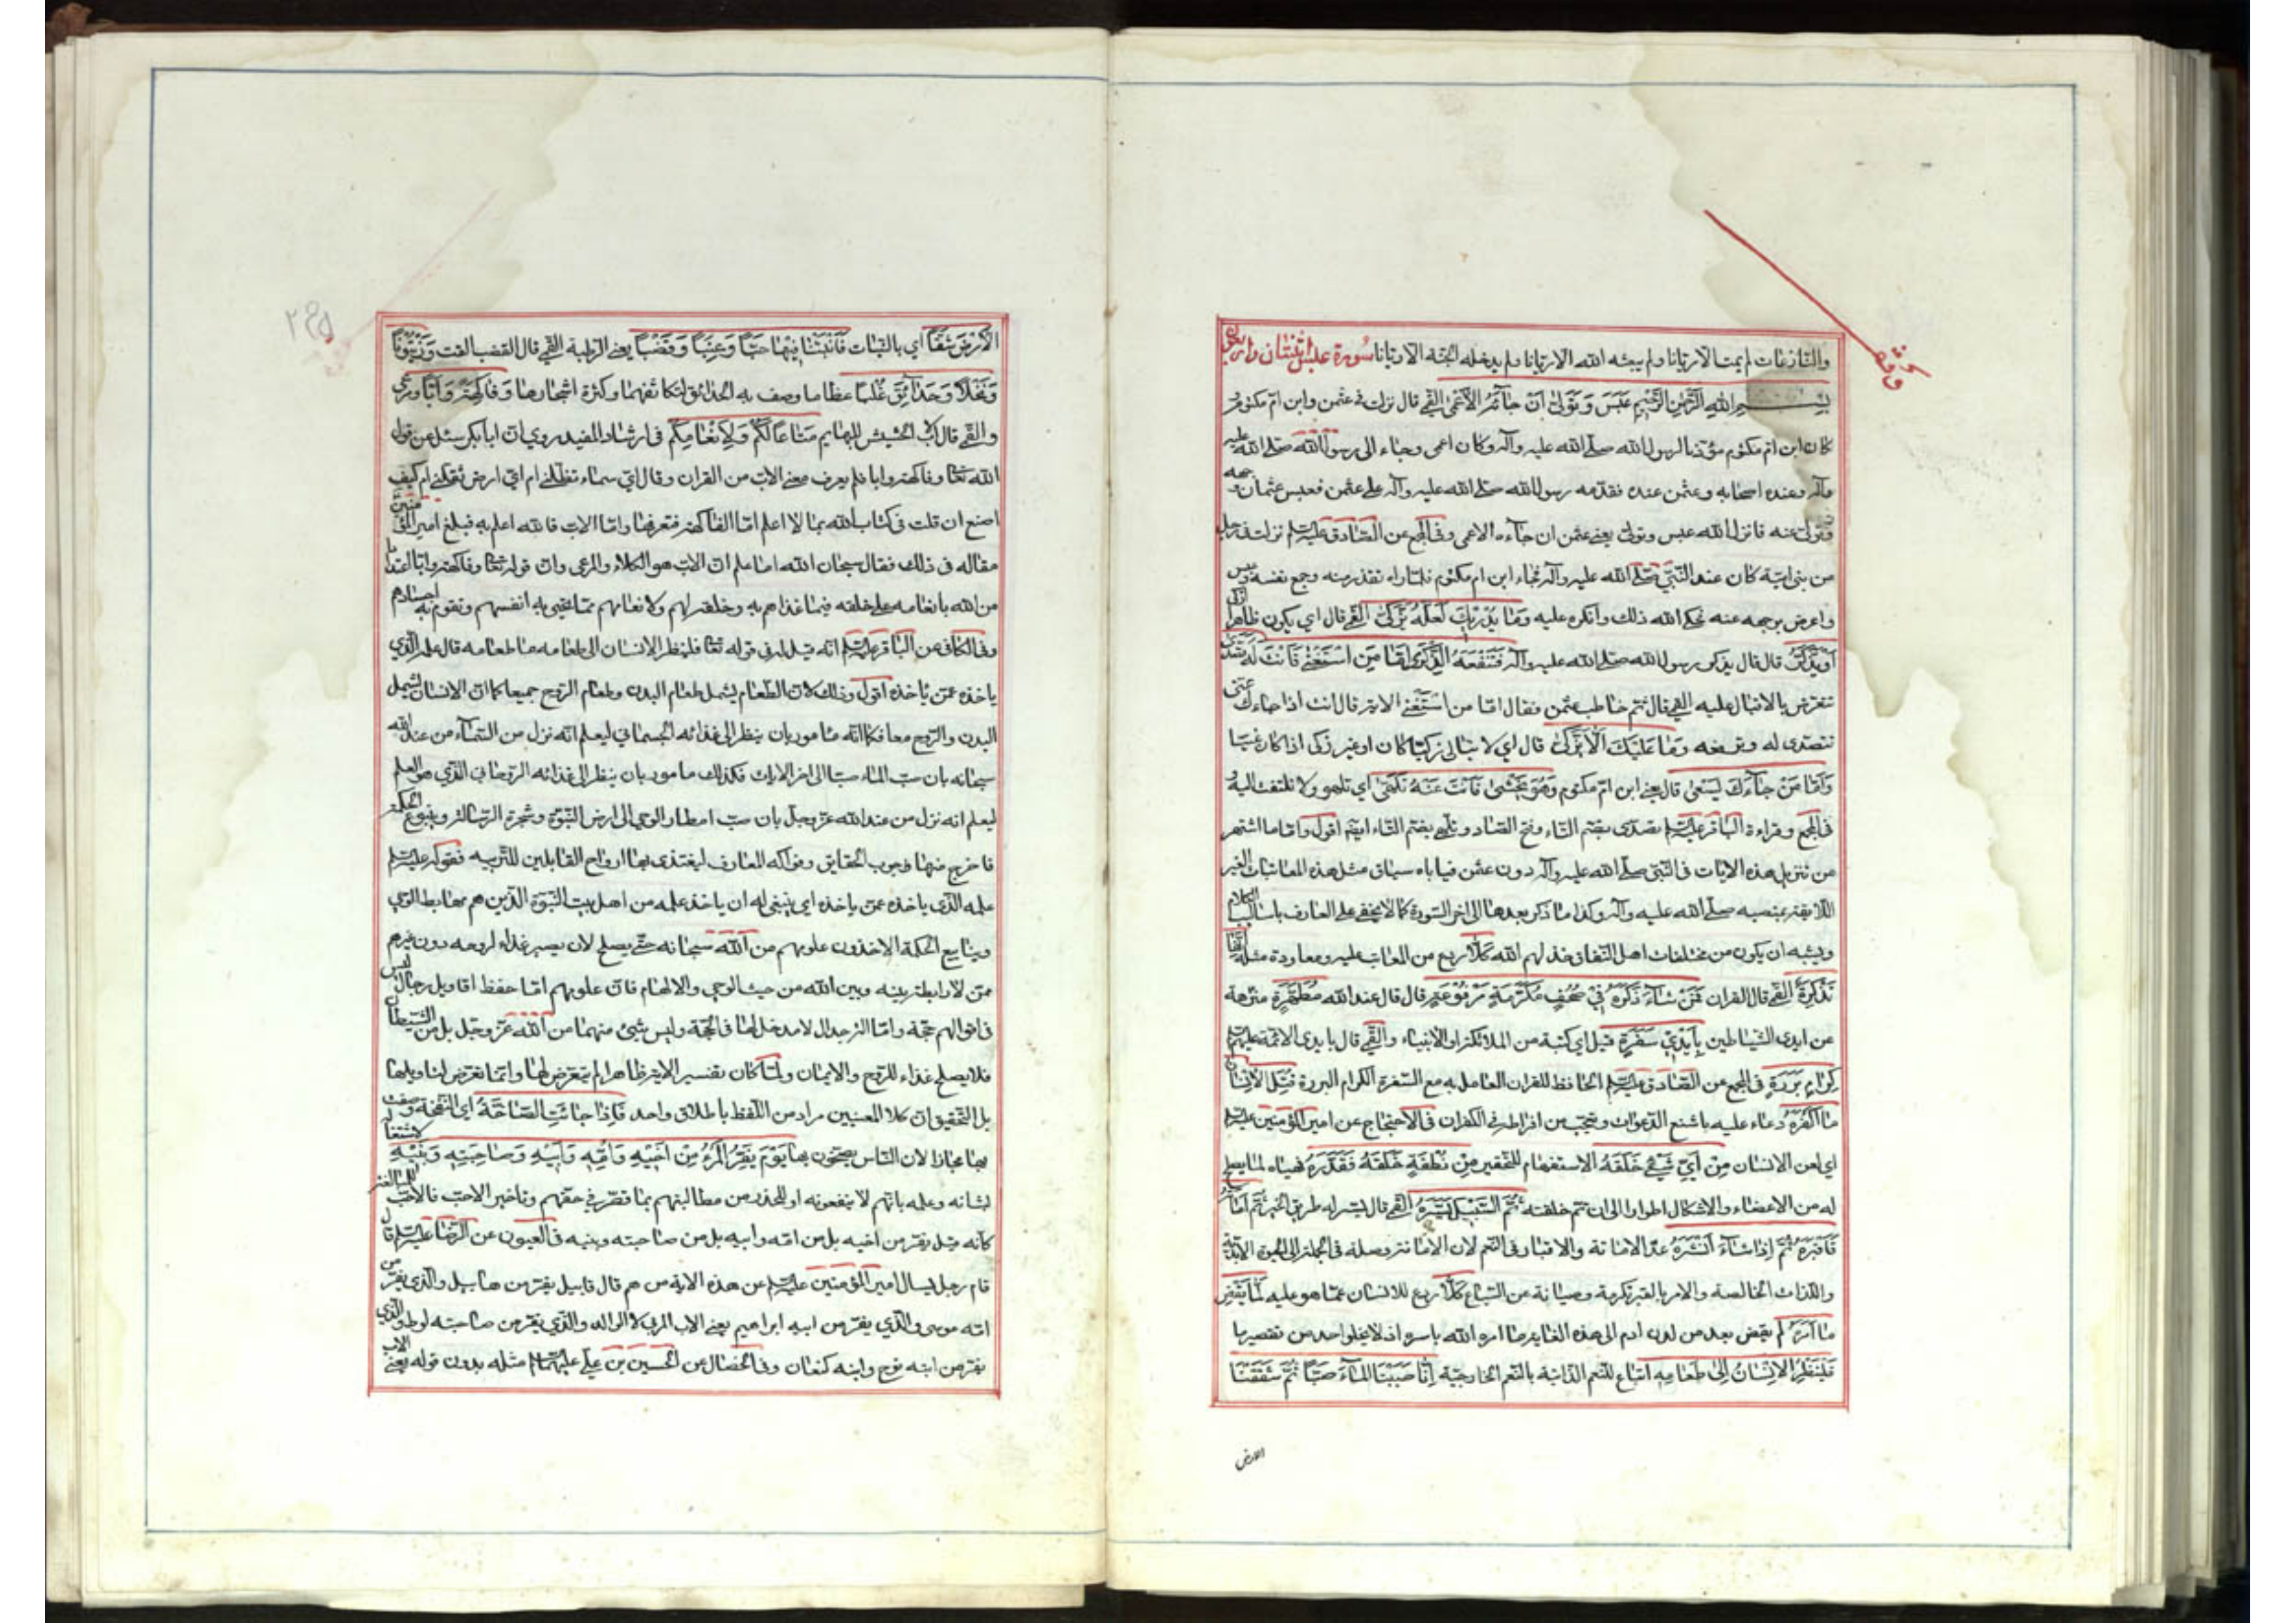 والنازعات لم يمت الا ريانا ولم يبعثه الله الا ريانا ولم يدخله الجنة الا ريانا سورة عبس اثنتان واربعون
بسم الله الرحمن الرحيم عبس وتولى ان جاءه الاعمى القمي قال نزلت في عثمن وابن ام مكتوم و
كان ابن ام مكتوم مؤذنا لرسول الله صلى الله عليه وآله وكان اعمى وجاء الى رسول الله صلى الله عليه
وآله وعنده اصحابه وعثمن عنده فقدمه رسول الله صلى الله عليه وآله على عثمن فعبس عثمان وجهه
وتولى عنه فانزل الله عبس وتولى يعني عثمن ان جاءه الاعمى وفي المجمع عن الصادق عليه السلم نزلت في رجل
من بني امية كان عند النبي صلى الله عليه وآله فجاء ابن ام مكتوم فلما راه تقذر منه وجمع نفسه وعبس
واعرض بوجهه عنه فحكى الله ذلك وانكره عليه وما يدريك لعله يزكى القمي قال اي يكون طاهرا ازكى
او يذكر قال قال يذكره رسول الله صلى الله عليه وآله فتنفعه الذكرى اما من استغنى فانت له تصدى
تتعرض بالاقبال عليه القمي قال ثم خاطب عثمن فقال اما من استغنى الاية قال انت اذا جاءك غني
تتصدى له وترفعه وما عليك الا يزكى قال اي لا تبالي زكيا كان او غير زكي اذا كان غنيا
واما من جاءك يسعى قال يعني ابن ام مكتوم وهو يخشى فانت عنه تلهى اي تلهو ولا تلتفت اليه و
في المجمع وقراءة الباقر عليه السلم تصدى بضم التاء وفتح الصاد وتلهى بضم التاء ايضا اقول واما ما اشتهر
من تنزيل هذه الايات في النبي صلى الله عليه وآله دون عثمن فيأباه سياق مثل هذه المعاتبات الغير
اللايقة بمنصبه صلى الله عليه وآله وكذا ما ذكر بعدها الى اخر السورة كما لا يخفى على العارف باساليب الكلام
ويشبه ان يكون من مختلقات اهل النفاق خذلهم الله كلا ردع من المعاتب عليه ومعاودة مثله انها
تذكرة القمي قال القران فمن شاء ذكره في صحف مكرمة مرفوعة قال قال عند الله مطهرة منزهة
عن ايدي الشياطين بايدي سفرة قيل اي كتبة من الملائكة او الانبياء والقمي قال بايدي الائمة عليهم السلم
كرام بررة في المجمع عن الصادق عليه السلم الحافظ للقران العامل به مع السفرة الكرام البررة قتل الانسان
ما اكفره دعاء عليه باشنع الدعوات وتعجب من افراطه في الكفران في الاحتجاج عن امير المؤمنين عليه السلم
اي لعن الانسان من اي شيء خلقه الاستفهام للتحقير من نطفة خلقه فقدره فهياه لما يصلح
له من الاعضاء والاشكال اطوارا الى ان تم خلقته ثم السبيل يسره القمي قال يسر له طريق الخير ثم اماته
فاقبره ثم اذا شاء انشره عد الاماتة والاقبار في النعم لان الاماتة وصلة في الجملة الى الحيوة الابدية
واللذات الخالصة والامر بالقبر تكرمة وصيانة عن السباع كلا ردع للانسان عما هو عليه لما يقض
ما امره لم يقض بعد من لدن ادم الى هذه الغاية ما امره الله باسره اذ لا يخلو احد من تقصير ما
فلينظر الانسان الى طعامه اتباع للنعم الذاتية بالنعم الخارجية انا صببنا الماء صبا ثم شققنا
الارض
الارض شقا اي بالنبات فانبتنا فيها حبا وعنبا وقضبا يعني الرطبة القمي قال القضب القت وزيتونا
ونخلا وحدائق غلبا عظاما وصف به الحدائق لتكاثفها وكثرة اشجارها وفاكهة وابا ومرعى
والقمي قال الاب الحشيش للبهايم متاعا لكم ولانعامكم في ارشاد المفيد روي ان ابا بكر سئل عن قول
الله تعالى وفاكهة وابا فلم يعرف معنى الاب من القران وقال اي سماء تظلني ام اي ارض تقلني ام كيف
اصنع ان قلت في كتاب الله بما لا اعلم اما الفاكهة فنعرفها واما الاب فالله اعلم به فبلغ امير المؤمنين
مقاله في ذلك فقال سبحان الله اما علم ان الاب هو الكلاء والمرعى وان قوله تعالى وفاكهة وابا اعتداد
من الله بانعامه على خلقه فيما غذاهم به وخلقه لهم ولانعامهم مما تحيى به انفسهم وتقوم به اجسادهم
وفي الكافي عن الباقر عليه السلم انه قيل له في قوله تعالى فلينظر الانسان الى طعامه ما طعامه قال علمه الذي
ياخذه عمن ياخذه اقول وذلك لان الطعام يشمل طعام البدن وطعام الروح جميعا كما ان الانسان يشمل
البدن والروح معا فكما انه مامور بان ينظر الى غذائه الجسماني ليعلم انه نزل من السماء من عند الله
سبحانه بان صب الماء صبا الى اخر الايات فكذلك مامور بان ينظر الى غذائه الروحاني الذي هو العلم
ليعلم انه نزل من عند الله عز وجل بان صب امطار الوحي الى ارض النبوة وشجرة الرسالة وينبوع الحكمة
فاخرج منها حبوب الحقايق وفواكه المعارف ليغتذي بها ارواح القابلين للتربية فقوله عليه السلم
علمه الذي ياخذه عمن ياخذه اي ينبغي له ان ياخذ علمه من اهل بيت النبوة الذين هم مهابط الوحي
وينابيع الحكمة الاخذون علومهم من الله سبحانه حتى يصلح لان يصير غذاء لروحه دون غيرهم
ممن لا رابطة بينه وبين الله من حيث الوحي والالهام فان علومهم اما حفظ اقاويل رجال ليس
في اقوالهم حجة واما الة جدال لا مدخل لها في الحجة وليس شيء منهما من الله عز وجل بل من الشيطان
فلا يصلح غذاء للروح والايمان ولما كان تفسير الاية ظاهرا لم يتعرض لها وانما تعرض لتاويلها
بل التحقيق ان كلا المعنيين مراد من اللفظ باطلاق واحد فاذا جاءت الصاخة اي النفخة وصفت
بها مجازا لان الناس يصخون بها يوم يفر المرء من اخيه وامه وابيه وصاحبته وبنيه لاشتغاله
بشانه وعلمه بانهم لا ينفعونه او للحذر من مطالبتهم بما قصر في حقهم وتاخير الاحب فالاحب للمبالغة
كانه قيل يفر من اخيه بل من امه وابيه بل من صاحبته وبنيه في العيون عن الرضا عليه السلم قال
قام رجل يسال امير المؤمنين عليه السلم عن هذه الاية من هم قال قابيل يفر من هابيل والذي يفر من
امه موسى والذي يفر من ابيه ابراهيم يعني الاب المربي لا الوالد والذي يفر من صاحبته لوط والذي
يفر من ابنه نوح وابنه كنعان وفي الخصال عن الحسين بن علي عليهما السلم مثله بدون قوله يعني الاب